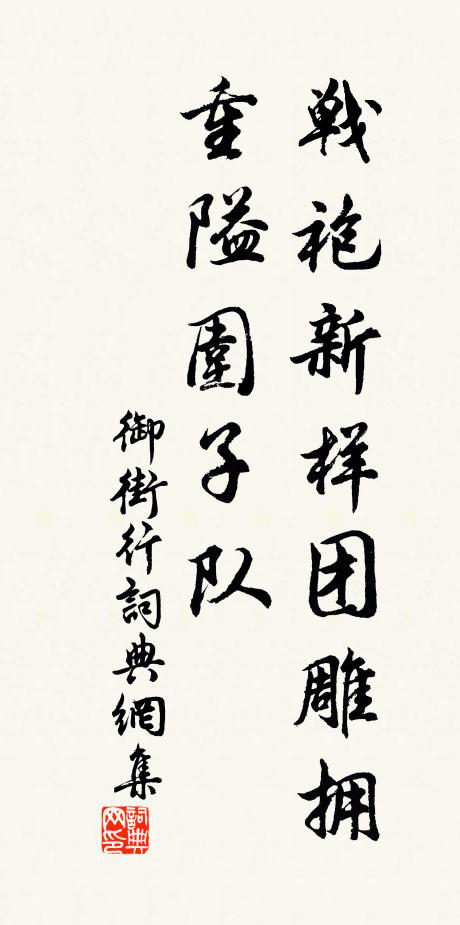 戦袍新样团雕拥
重隘圍子队
御街行詞典網集
詞典网印